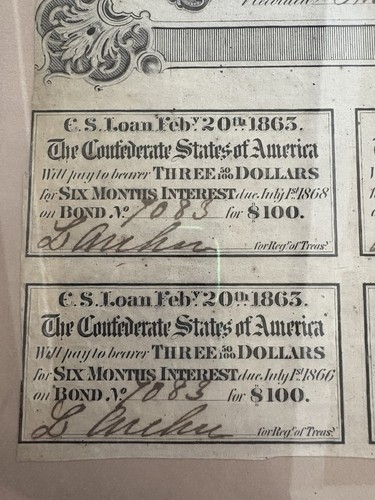 C. S. Loan Feb.y 20th 1863.
The Confederate States of America
Will pay to bearer THREE 50/100 DOLLARS
for SIX MONTHS INTEREST due July 1st 1868
on BOND, No 7083 for $100.
for Regr. of Treasy.
C. S. Loan Feb.y 20th 1863.
The Confederate States of America
Will pay to bearer THREE 50/100 DOLLARS
for SIX MONTHS INTEREST due July 1st 1866
on BOND, No 7083 for $100.
for Regr. of Treasy.